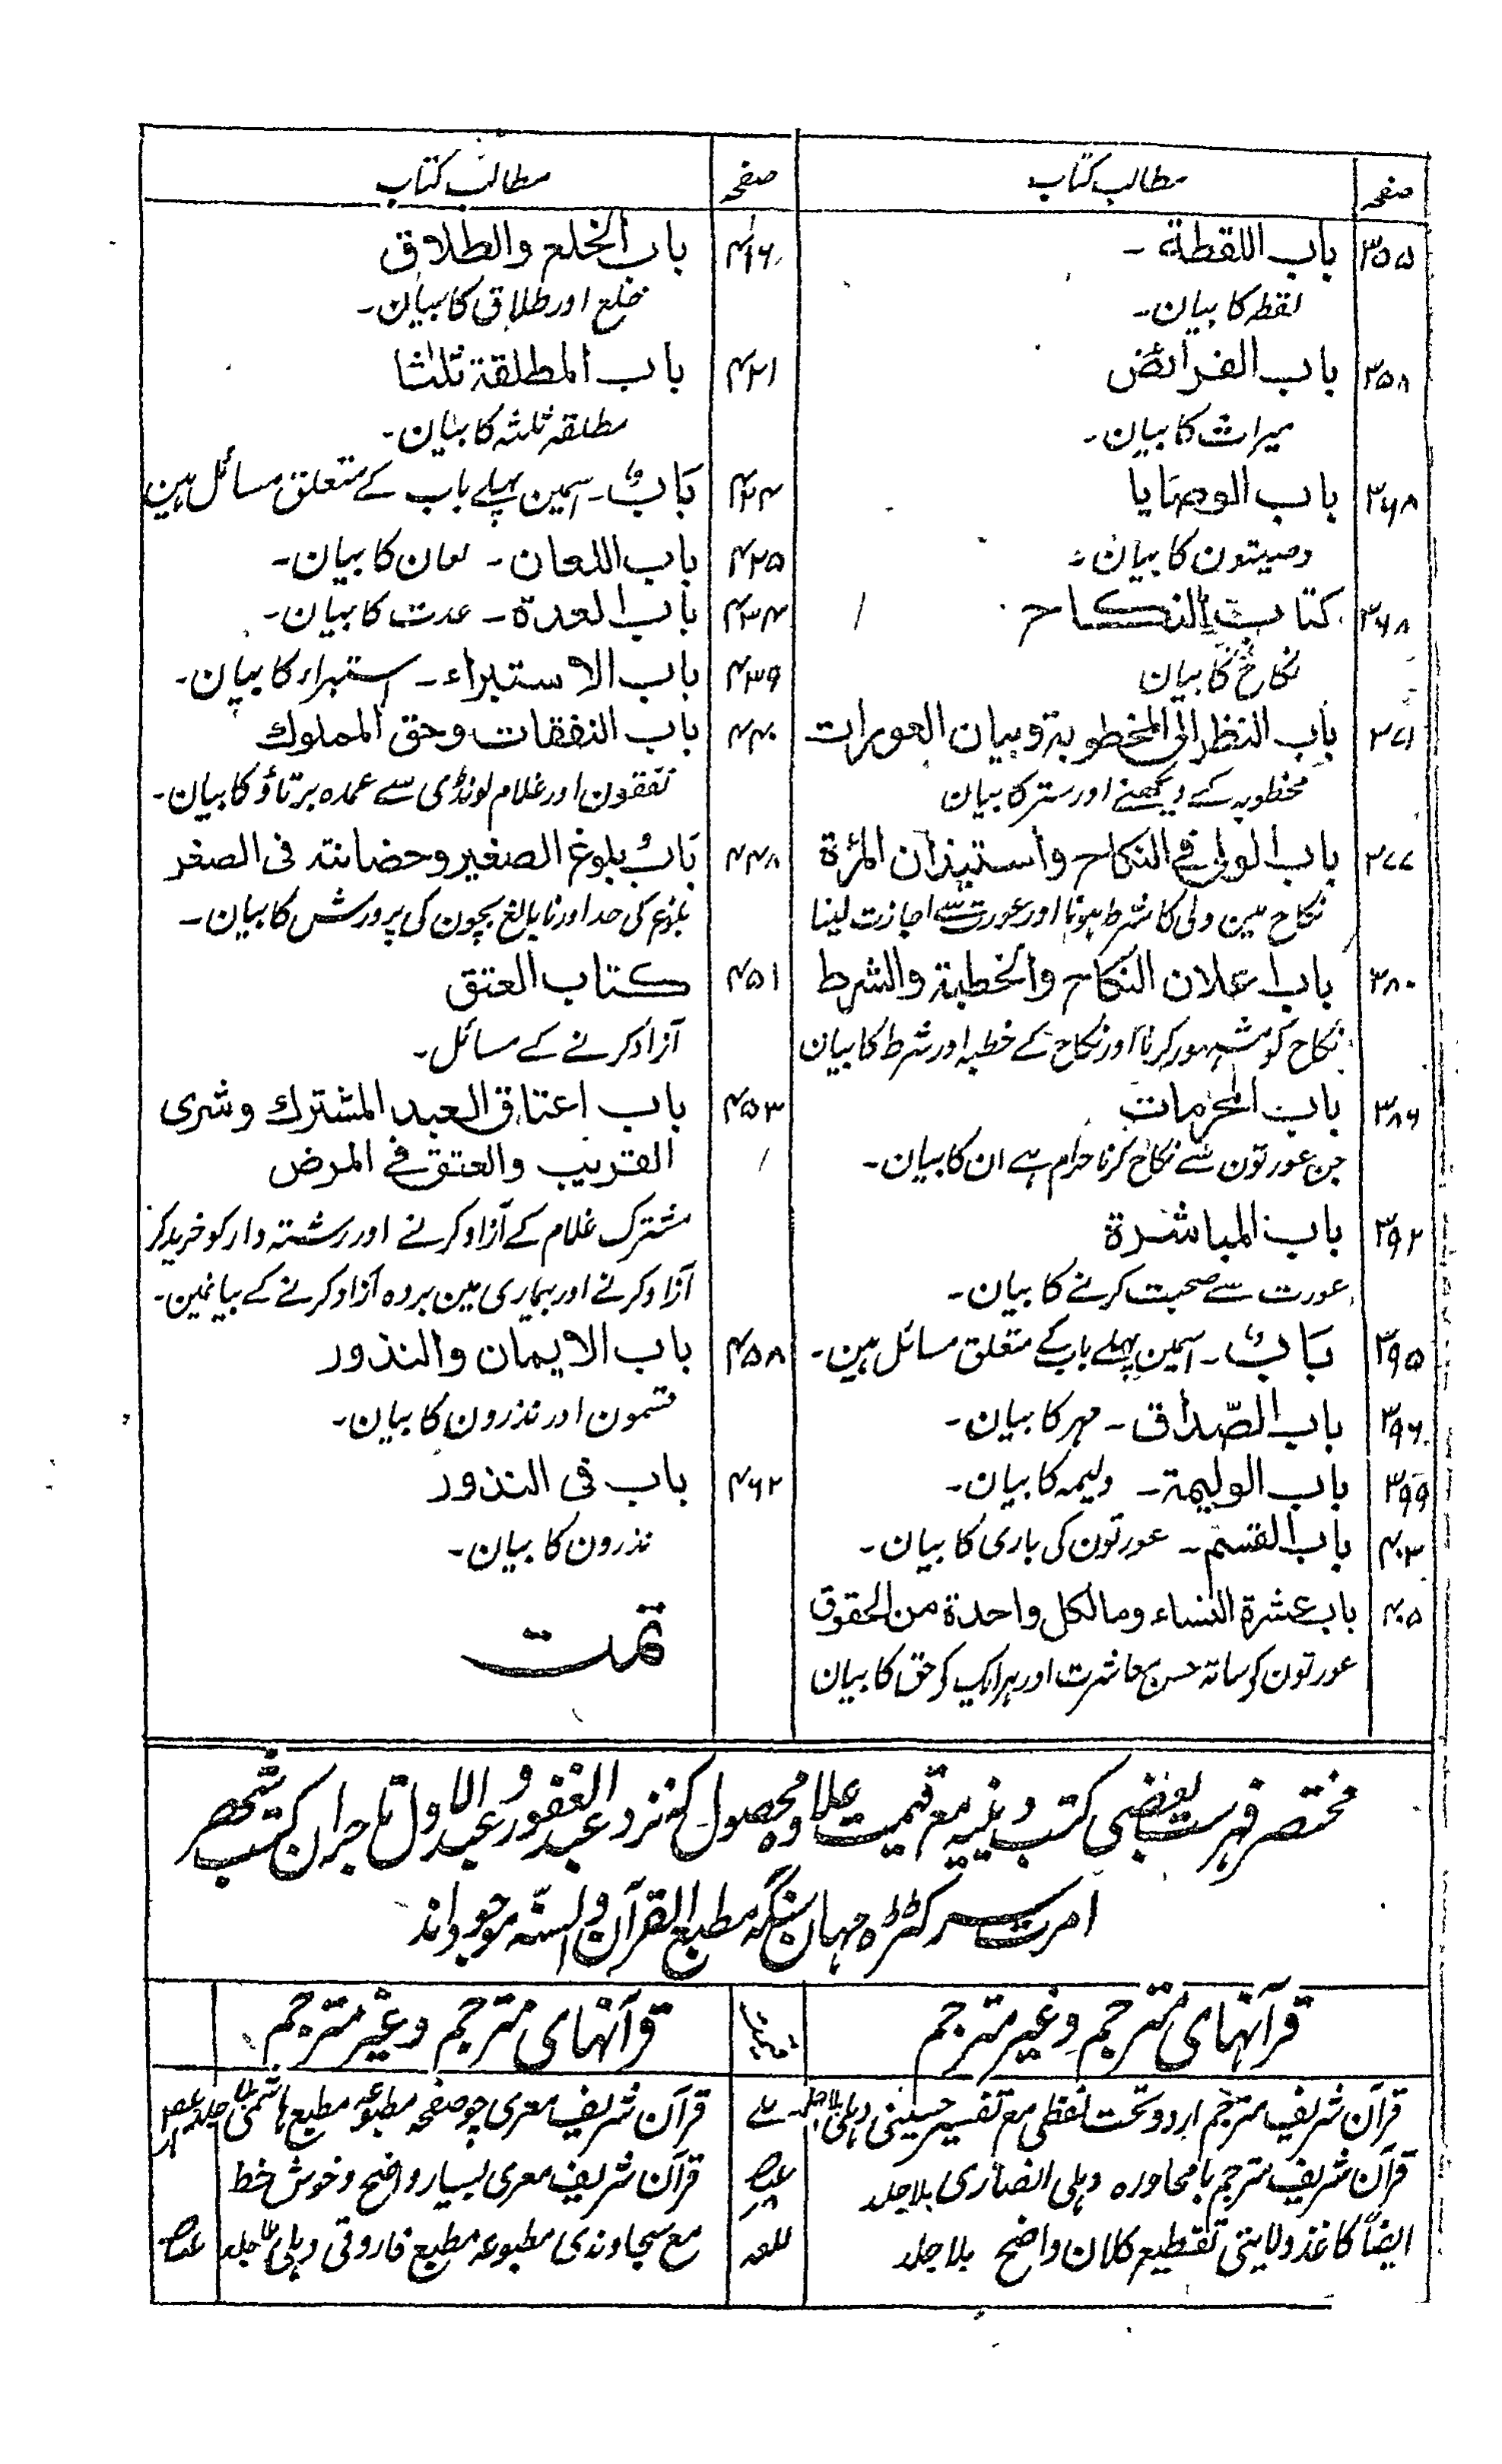 صفحہ مطالب کتاب
۳۵۵ باب اللقطة ۔
لقطہ کا بیان۔
۳۵۸ باب الفرائض
میراث کا بیان۔
۳۶۸ باب الوصایا
وصیتون کا بیان۔
۳۶۸ کتاب النکاح
نکاح کا بیان
۳۷۱ باب النظر الی المخطوبة وبیان العورات
مخطوبہ کے دیکھنے اور ستر کا بیان
۳۷۷ باب الولی فی النکاح واستیذان المرٔة
نکاح مین ولی کا شرط ہونا اور عورت سے اجازت لینا
۳۸۰ باب اعلان النکاح والخطبة والشرط
نکاح کو مشہور کرنا اور نکاح کے خطبہ اور شرط کا بیان
۳۸۶ باب المحرمات
جن عورتون سے نکاح کرنا حرام ہے ان کا بیان۔
۳۹۲ باب المباشرة
عورت سے صحبت کرنے کا بیان۔
۳۹۵ بَابٌ ۔ اسمین پہلے باب کے متعلق مسائل ہین۔
۳۹۶ باب الصّداق ۔ مہر کا بیان۔
۳۹۹ باب الولیمة ۔ ولیمہ کا بیان۔
۴۰۳ باب القسم ۔ عورتون کی باری کا بیان۔
۴۰۵ باب عشرة النساء وما لکل واحدة من الحقوق
عورتون کے ساتہ حسن معاشرت اور ہر ایک کے حق کا بیان
صفحہ مطالب کتاب
۴۱۶ باب الخلع والطلاق
خلع اور طلاق کا بیان۔
۴۲۱ باب المطلقة ثلثا
مطلقہ ثلثہ کا بیان۔
۴۲۴ بَابٌ ۔ اسمین پہلے باب کے متعلق مسائل ہین
۴۲۵ باب اللعان ۔ لعان کا بیان۔
۴۳۴ باب العدة ۔ عدت کا بیان۔
۴۳۹ باب الاستبراء ۔ استبراء کا بیان۔
۴۴۰ باب النفقات وحق المملوك
نفقون اور غلام لونڈی سے عمدہ برتاؤ کا بیان۔
۴۴۸ بَابُ بلوغ الصغیر وحضانتہ فی الصغر
بلوغ کی حد اور نابالغ بچون کی پرورش کا بیان ۔
۴۵۱ کتاب العتق
آزاد کرنے کے مسائل۔
۴۵۳ باب اعتاق العبد المشترك وشری
القریب والعتق فی المرض
مشترک غلام کے آزاد کرنے اور رشتہ دار کو خرید کر
آزاد کرنے اور بیماری مین بردہ آزاد کرنے کے بیانمین۔
۴۵۸ باب الایمان والنذور
قسمون اور نذرون کا بیان۔
۴۶۲ باب فی النذور
نذرون کا بیان۔
تمت
مختصر فہرست بعضی کتب دینیہ مع قیمت علاوہ محصول کہ نزد عبد الغفور و عبد الاول تاجران کتب شہر
امرت سر کٹڑہ مہان سنگہ مطبع القرآن والسنّہ موجود اند
قرآنہای مترجم وغیر مترجم قیمت
قرآن شریف مترجم اردو تحت لفظی مع تفسیر حسینی دہلی بلا جلد
قرآن شریف مترجم بامحاورہ دہلی انصاری بلا جلد
ایضاً کاغذ ولایتی تقطیع کلان واضح بلا جلد
قرآنہای مترجم وغیر مترجم
قرآن شریف معری چو صفحہ مطبوعہ مطبع ہاشمی بلا جلد
قرآن شریف معری بسیار واضح و خوش خط
مع سجاوندی مطبوعہ مطبع فاروقی دہلی بلا جلد